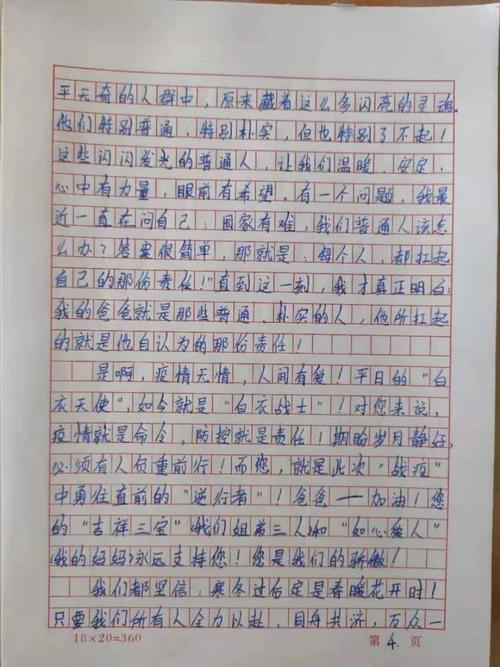 平无奇的人群中，原来藏着这么多闪亮的灵魂。
他们特别普通、特别朴实，但也特别了不起！
这些闪闪发光的普通人，让我们温暖、安定，
心中有力量，眼前有希望。有一个问题，我最
近一直在问自己：国家有难，我们普通人该怎
么办？答案很简单，那就是：每个人，都扛起
自己的那份责任！”直到这一刻，我才真正明白：
我的爸爸就是那些普通、朴实的人，他所扛起
的就是他自认为的那份责任！
是啊，疫情无情，人间有爱！平日的“白
衣天使”，如今就是“白衣战士”！对您来说，
疫情就是命令，防控就是责任！期盼岁月静好，
必须有人负重前行！而您，就是此次“战疫”
中勇往直前的“逆行者”！爸爸——加油！您
的“吉祥三宝”（我们姐弟三人）和“如心爱人”
（我的妈妈）永远支持您！您是我们的骄傲！
我们都坚信：寒冬过后定是春暖花开时！
只要我们所有人全力以赴，同舟共济，万众一
18×20=360 第 4. 页